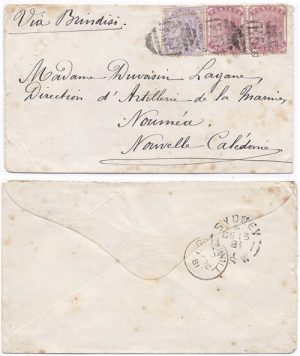 Via Brindisi.
Madame Duvaisin Lagane,
Direction d'Artillerie de la Marine,
Nouméa,
Nouvelle-Calédonie
SYDNEY